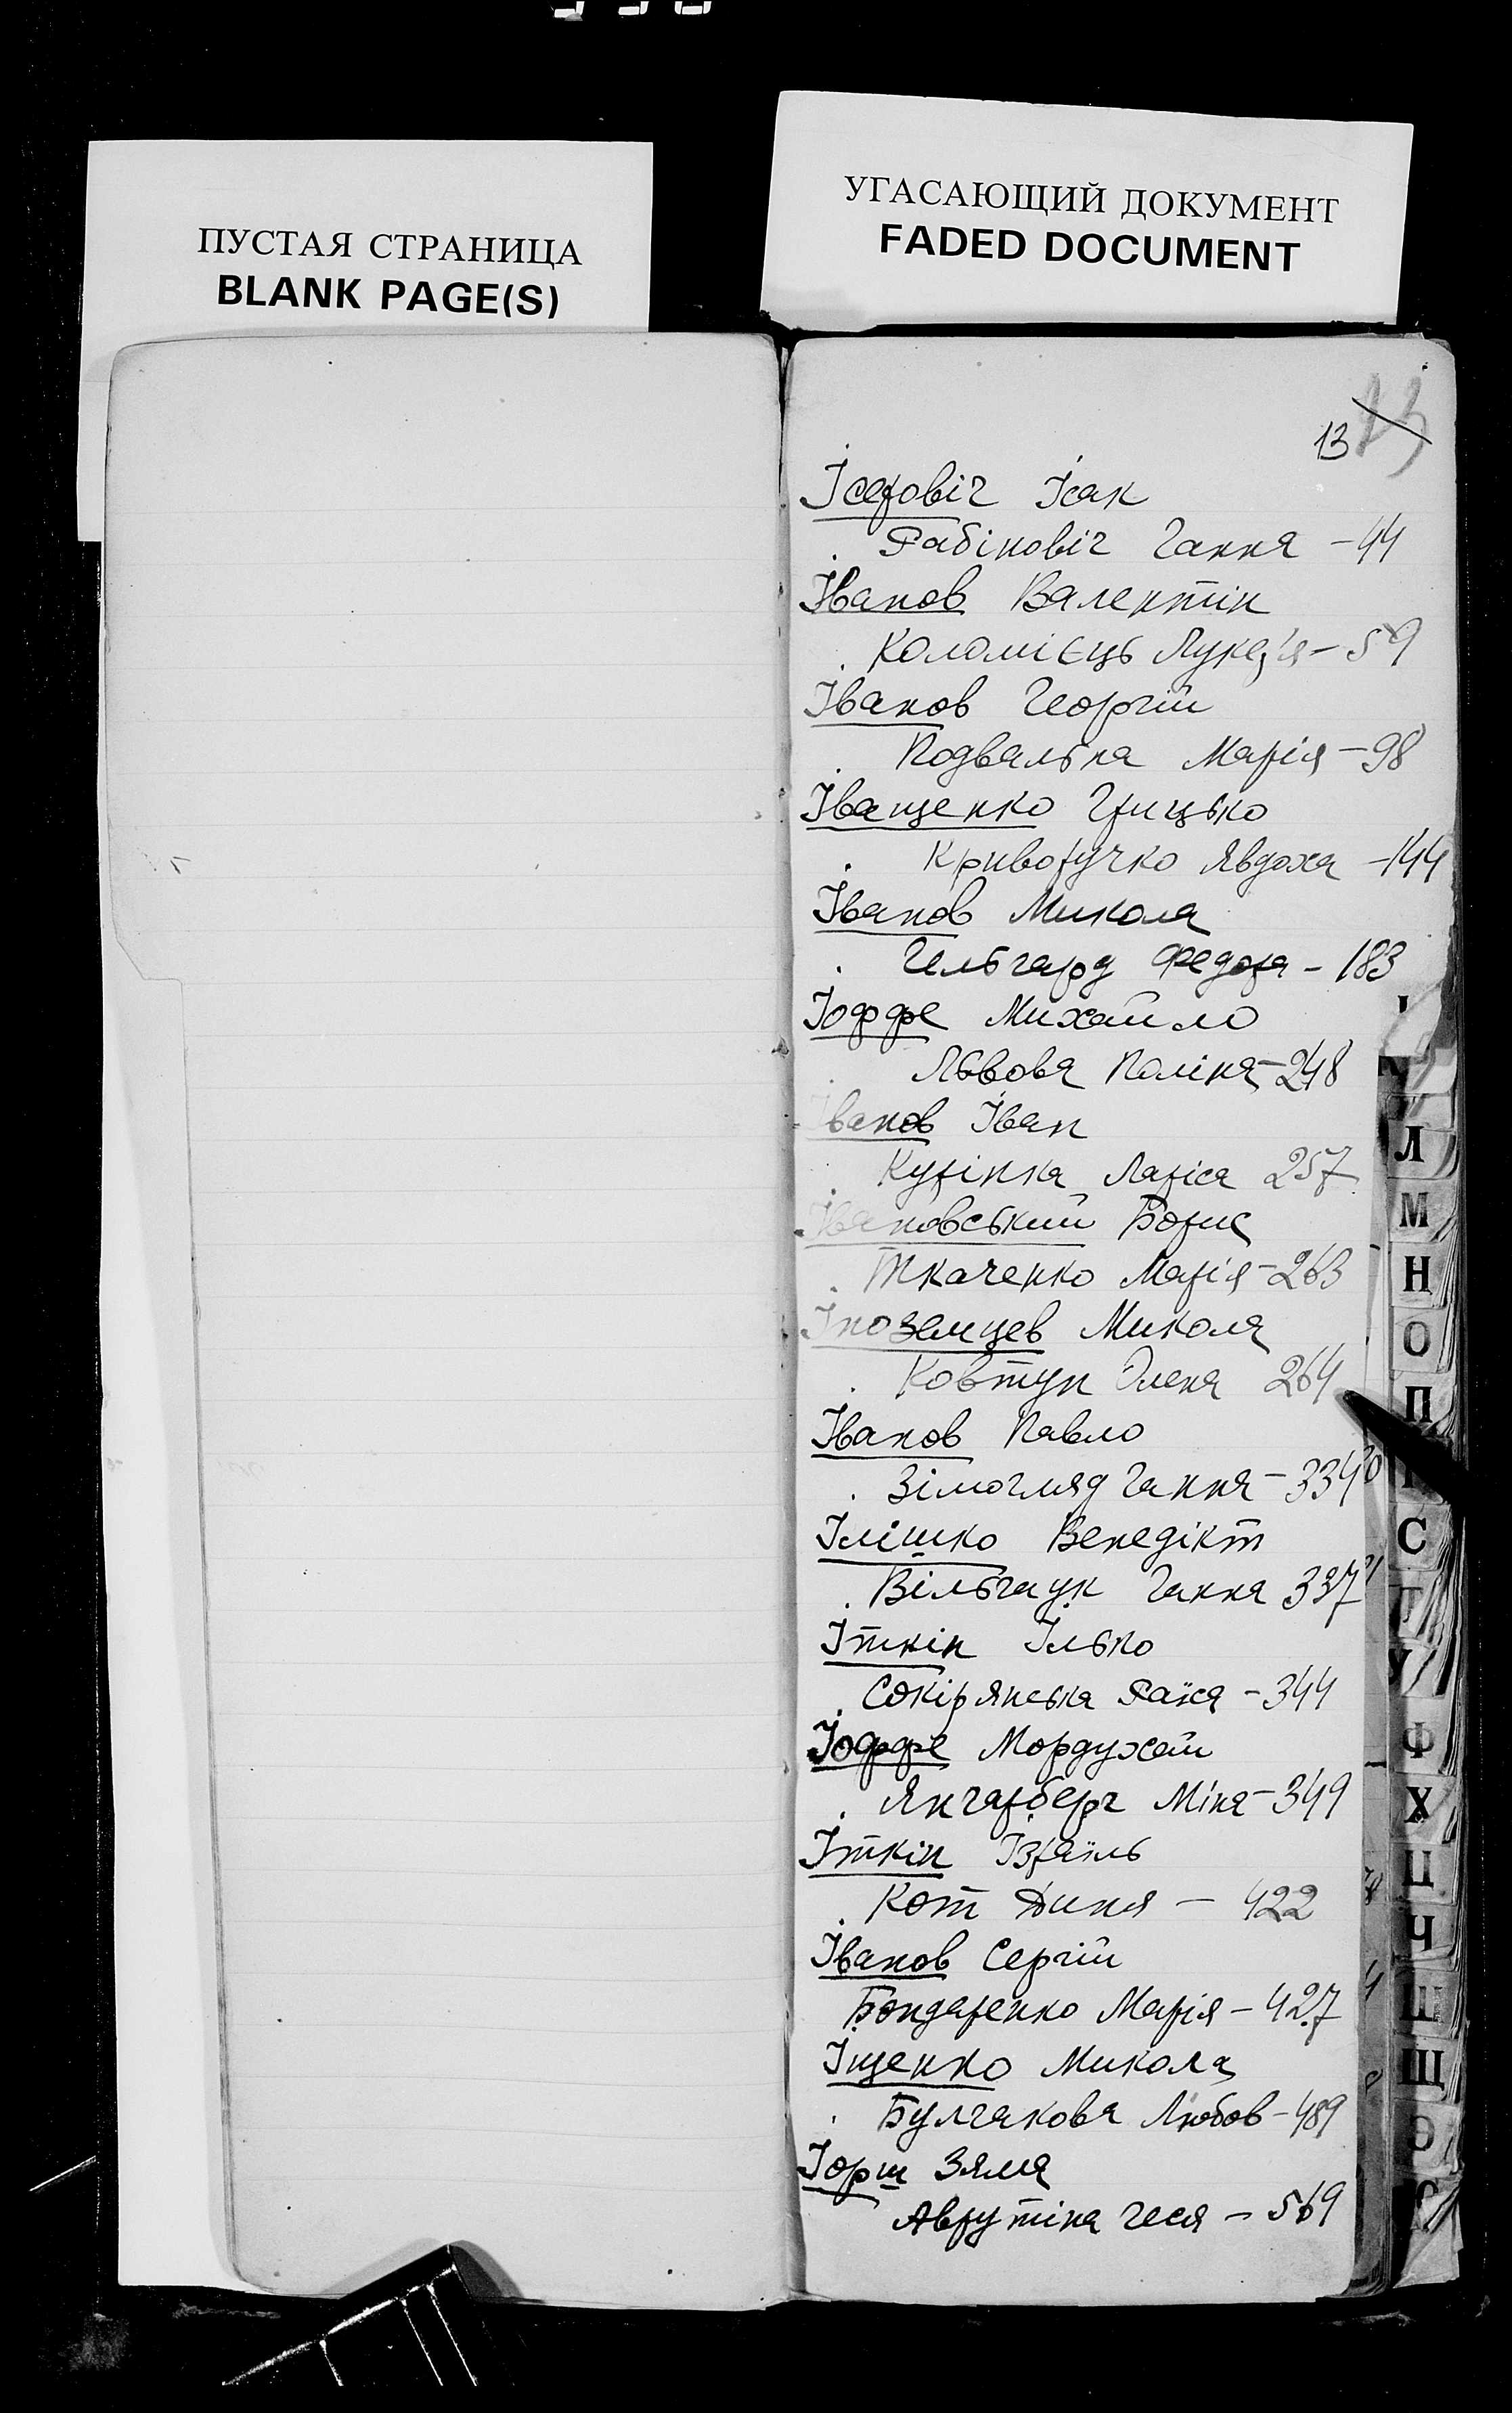 ПУСТАЯ СТРАНИЦА
BLANK PAGE(S)
УГАСАЮЩИЙ ДОКУМЕНТ
FADED DOCUMENT
13
Ісерович Ісак
Рабіновіч Гання - 44
Іванов Валентін
Коломієць Лукер'я - 59
Іванов Георгій
Подвальна Марія - 98
Іващенко Грицько
Криворучко Явдоха - 144
Іванов Микола
Гельгард Федора - 183
Іоффе Михайло
Львова Поліна - 248
Іванов Іван
Курінна Лариса 257
Івановський Борис
Ткаченко Марія - 263
Іноземцев Микола
Ковтун Олена 264
Іванов Павло
Зімогляд Гання - 334
Ілішко Венедікт
Вільгаук Ганна 337
Іткін Ілько
Сокірянська Раїса - 344
Іоффе Мордухай
Янгарберг Міна - 349
Іткін Ізраїль
Кот Диня - 422
Іванов Сергій
Бондаренко Марія - 427
Іщенко Микола
Булгакова Любов - 489
Іорш Зяма
Аврутіна Геся - 569
Л
М
Н
О
П
С
Т
У
Ф
Х
Ц
Ч
Ш
Щ
Э